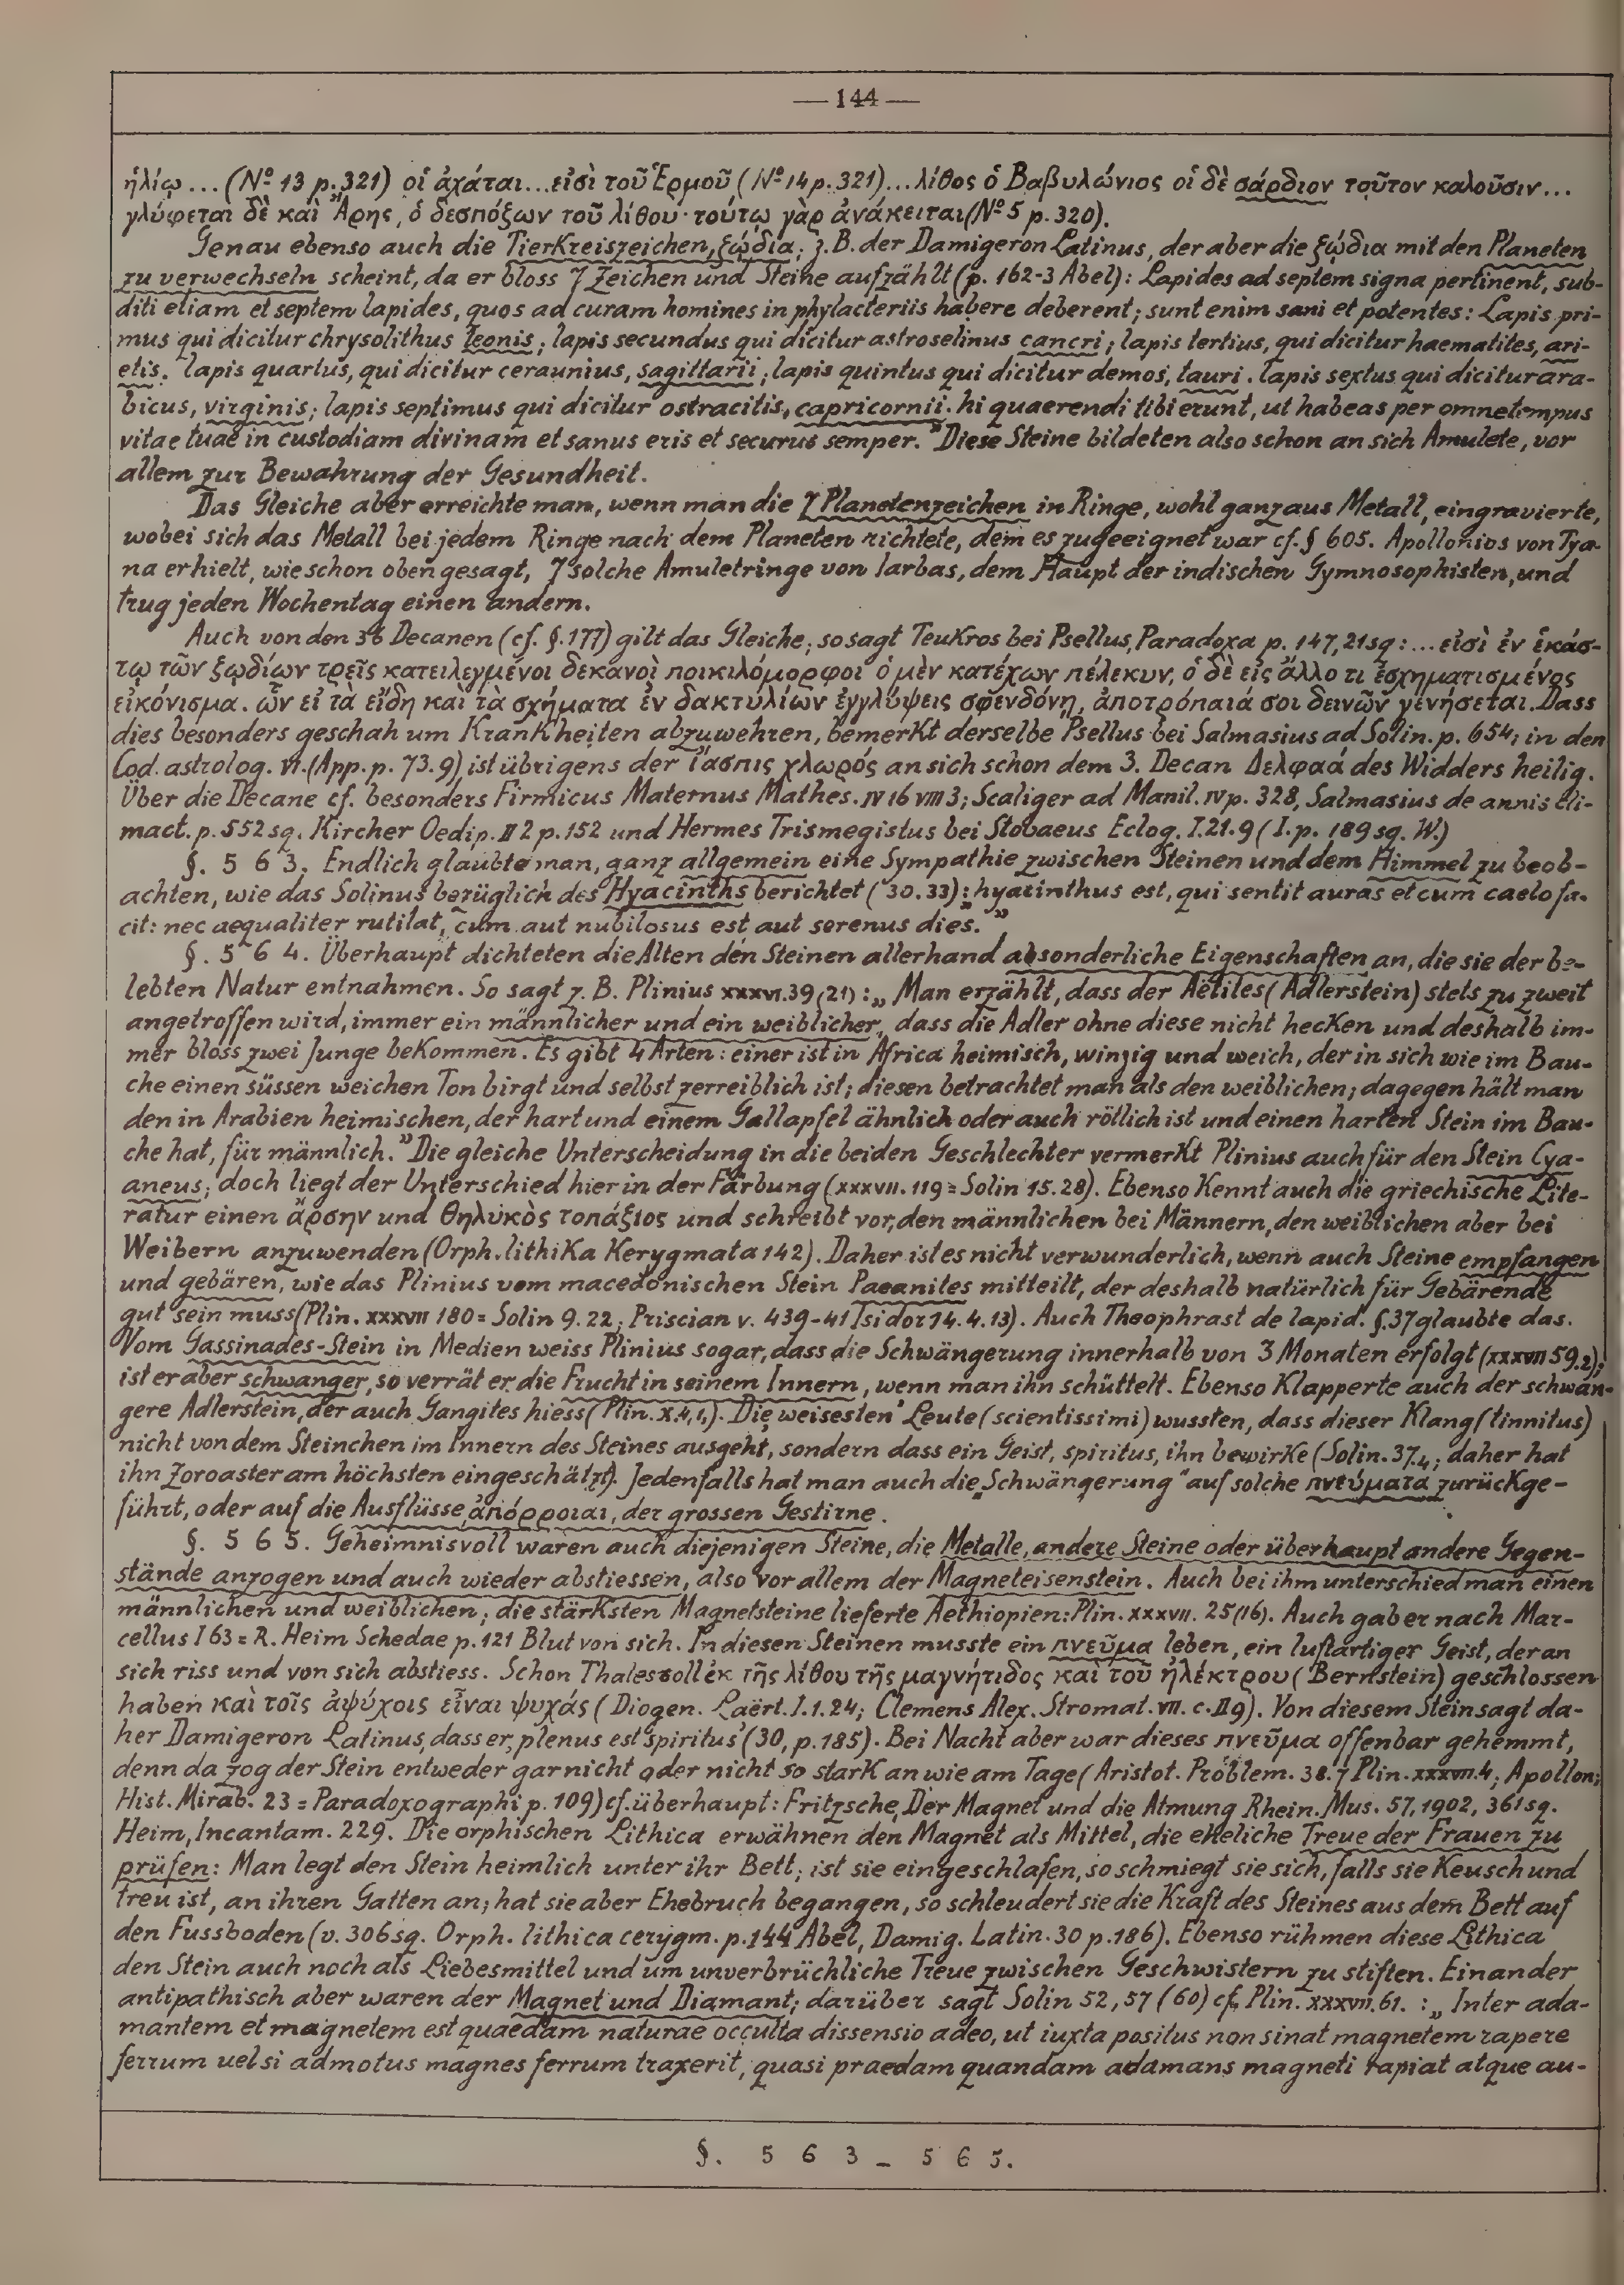 — 144 —
ἡλίῳ ... (No 13 p. 321) οἱ ἀχάται... εἰσὶ τοῦ Ἑρμοῦ (No 14 p. 321)... λίθος ὁ Βαβυλώνιος οἱ δὲ σάρδιον τοῦτον καλοῦσιν...
γλύφεται δὲ καὶ Ἄρης, ὁ δεσπόζων τοῦ λίθου· τούτῳ γὰρ ἀνάκειται (No 5 p. 320).
Genau ebenso auch die Tierkreiszeichen, ζῴδια; z. B. der Damigeron Latinus, der aber die ζῴδια mit den Planeten
zu verwechseln scheint, da er bloss 7 Zeichen und Steine aufzählt (p. 162-3 Abel): Lapides ad septem signa pertinent, sub-
diti etiam et septem lapides, quos ad curam homines in phylacteriis habere deberent; sunt enim sani et potentes: Lapis pri-
mus qui dicitur chrysolithus leonis; lapis secundus qui dicitur astroselinus cancri; lapis tertius, qui dicitur haematites, ari-
etis. lapis quartus, qui dicitur ceraunius, sagittarii; lapis quintus qui dicitur demos, tauri. lapis sextus qui dicitur ara-
bicus, virginis; lapis septimus qui dicitur ostracitis, capricornii. hi quaerendi tibi erunt, ut habeas per omne tempus
vitae tuae in custodiam divinam et sanus eris et securus semper." Diese Steine bildeten also schon an sich Amulete, vor
allem zur Bewahrung der Gesundheit.
Das Gleiche aber erreichte man, wenn man die 7 Planetenzeichen in Ringe, wohl ganz aus Metall, eingravierte,
wobei sich das Metall bei jedem Ringe nach dem Planeten richtete, dem es zugeeignet war cf. § 605. Apollonios von Tya-
na erhielt, wie schon oben gesagt, 7 solche Amuletringe von Iarbas, dem Haupt der indischen Gymnosophisten, und
trug jeden Wochentag einen andern.
Auch von den 36 Decanen (cf. §. 177) gilt das Gleiche; so sagt Teukros bei Psellus, Paradoxa p. 147, 21 sq: ... εἰσὶ ἐν ἑκάσ-
τῳ τῶν ζῳδίων τρεῖς κατειλεγμένοι δεκανοὶ ποικιλόμορφοι ὁ μὲν κατέχων πέλεκυν, ὁ δὲ εἰς ἄλλο τι ἐσχηματισμένος
εἰκόνισμα. ὧν εἰ τὰ εἴδη καὶ τὰ σχήματα ἐν δακτυλίων ἐγγλύψεις σφενδόνῃ, ἀποτρόπαιά σοι δεινῶν γενήσεται. Dass
dies besonders geschah um Krankheiten abzuwehren, bemerkt derselbe Psellus bei Salmasius ad Solin. p. 654; in den
Cod. astrolog. VI. (App. p. 73. 9) ist übrigens der ἴασπις χλωρός an sich schon dem 3. Decan Δελφαά des Widders heilig.
Über die Decane cf. besonders Firmicus Maternus Mathes. IV 16 VIII 3; Scaliger ad Manil. IV p. 328, Salmasius de annis cli-
mact. p. 552 sq. Kircher Oedip. II 2 p. 152 und Hermes Trismegistus bei Stobaeus Eclog. I. 21. 9 (I. p. 189 sq. W.)
§. 5 6 3. Endlich glaubte man, ganz allgemein eine Sympathie zwischen Steinen und dem Himmel zu beob-
achten, wie das Solinus bezüglich des Hyacinths berichtet (30. 33): „hyacinthus est, qui sentit auras et cum caelo fa-
cit: nec aequaliter rutilat, cum aut nubilosus est aut serenus dies."
§. 5 6 4. Überhaupt dichteten die Alten den Steinen allerhand absonderliche Eigenschaften an, die sie der be-
lebten Natur entnahmen. So sagt z. B. Plinius XXXVI. 39 (21): „Man erzählt, dass der Aëtites (Adlerstein) stets zu zweit
angetroffen wird, immer ein männlicher und ein weiblicher, dass die Adler ohne diese nicht hecken und deshalb im-
mer bloss zwei Junge bekommen. Es gibt 4 Arten: einer ist in Africa heimisch, winzig und weich, der in sich wie im Bau-
che einen süssen weichen Ton birgt und selbst zerreiblich ist; diesen betrachtet man als den weiblichen; dagegen hält man
den in Arabien heimischen, der hart und einem Gallapfel ähnlich oder auch rötlich ist und einen harten Stein im Bau-
che hat, für männlich." Die gleiche Unterscheidung in die beiden Geschlechter vermerkt Plinius auch für den Stein Cya-
aneus; doch liegt der Unterschied hier in der Färbung (XXXVII. 119 = Solin 15. 28). Ebenso kennt auch die griechische Lite-
ratur einen ἄρσην und θηλυκὸς τοπάξιος und schreibt vor, den männlichen bei Männern, den weiblichen aber bei
Weibern anzuwenden (Orph. lithika Kerygmata 142). Daher ist es nicht verwunderlich, wenn auch Steine empfangen
und gebären, wie das Plinius vom macedonischen Stein Paeanites mitteilt, der deshalb natürlich für Gebärende
gut sein muss (Plin. XXXVII 180 = Solin 9. 22; Priscian v. 439-41 Isidor 14. 4. 13). Auch Theophrast de lapid. §. 37 glaubte das.
Vom Gassinades-Stein in Medien weiss Plinius sogar, dass die Schwängerung innerhalb von 3 Monaten erfolgt (XXXVII 59. 2);
ist er aber schwanger, so verrät er die Frucht in seinem Innern, wenn man ihn schüttelt. Ebenso klapperte auch der schwan-
gere Adlerstein, der auch Gangites hiess (Plin. X. 4, 1.). Die weisesten Leute (scientissimi) wussten, dass dieser Klang (tinnitus)
nicht von dem Steinchen im Innern des Steines ausgeht, sondern dass ein Geist, spiritus, ihn bewirke (Solin. 37. 4; daher hat
ihn Zoroaster am höchsten eingeschätzt). Jedenfalls hat man auch die „Schwängerung" auf solche πνεύματα zurückge-
führt, oder auf die Ausflüsse, ἀπόρροιαι, der grossen Gestirne.
§. 5 6 5. Geheimnisvoll waren auch diejenigen Steine, die Metalle, andere Steine oder überhaupt andere Gegen-
stände anzogen und auch wieder abstiessen, also vor allem der Magneteisenstein. Auch bei ihm unterschied man einen
männlichen und weiblichen; die stärksten Magnetsteine lieferte Aethiopien: Plin. XXXVII. 25 (16). Auch gab er nach Mar-
cellus I 63 = R. Heim Schedae p. 121 Blut von sich. In diesen Steinen musste ein πνεῦμα leben, ein luftartiger Geist, der an
sich riss und von sich abstiess. Schon Thales soll ἐκ τῆς λίθου τῆς μαγνήτιδος καὶ τοῦ ἠλέκτρου (Bernstein) geschlossen
haben καὶ τοῖς ἀψύχοις εἶναι ψυχάς (Diogen. Laërt. I. 1. 24; Clemens Alex. Stromat. VII. c. II 9). Von diesem Stein sagt da-
her Damigeron Latinus, dass er „plenus est spiritus" (30, p. 185). Bei Nacht aber war dieses πνεῦμα offenbar gehemmt,
denn da zog der Stein entweder gar nicht oder nicht so stark an wie am Tage (Aristot. Problem. 38. 7 Plin. XXXVII. 4; Apollon;
Hist. Mirab. 23 = Paradoxographi p. 109) cf. überhaupt: Fritzsche, Der Magnet und die Atmung Rhein. Mus. 57, 1902, 361 sq.
Heim, Incantam. 229. Die orphischen Lithica erwähnen den Magnet als Mittel, die eheliche Treue der Frauen zu
prüfen: Man legt den Stein heimlich unter ihr Bett; ist sie eingeschlafen, so schmiegt sie sich, falls sie keusch und
treu ist, an ihren Gatten an; hat sie aber Ehebruch begangen, so schleudert sie die Kraft des Steines aus dem Bett auf
den Fussboden (v. 306 sq. Orph. lithica cerygm. p. 144 Abel, Damig. Latin. 30 p. 186). Ebenso rühmen diese Lithica
den Stein auch noch als Liebesmittel und um unverbrüchliche Treue zwischen Geschwistern zu stiften. Einander
antipathisch aber waren der Magnet und Diamant; darüber sagt Solin 52, 57 (60) cf. Plin. XXXVII. 61. : „Inter ada-
mantem et magnetem est quaedam naturae occulta dissensio adeo, ut iuxta positus non sinat magnetem rapere
ferrum uel si admotus magnes ferrum traxerit, quasi praedam quandam adamans magneti rapiat atque au-
§. 5 6 3 - 5 6 5.